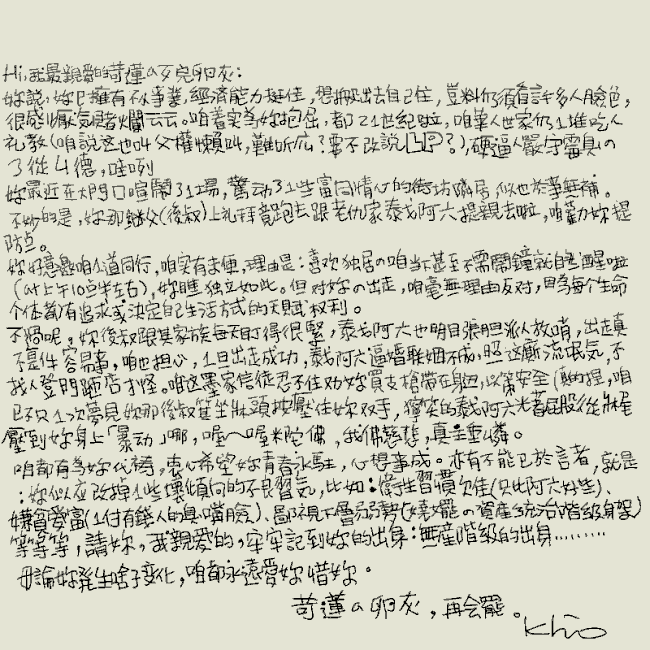 Hi,我最親愛的苛蓮の歹兒卵灰:
妳說,妳已擁有不小事業,經濟能力挺佳,想搬出去自己住,豈料仍須看許多人臉色,
很感慨,氣者爛云云。咱着实為妳抱屈,都21世紀啦,咱華人世家仍1堆吃人
礼教(咱說这也叫父權懶叫,難听広?要不改說
?),硬逼人嚴守電具の
了從4德,哇咧
妳最近在大門口喧鬧了1場,驚动了1些富同情心的街坊隣居,似也於事無補。
不妙的是,妳那継父(後叔)上礼拜竟跑去跟老仇家泰戈阿六提親去啦,咱勸妳提
防点。
妳好意邀咱1道同行,咱实有未便,理由是:喜欢独居の咱当下甚至不需鬧鐘就自己醒啦
(at上午10点半左右),妳瞧独立如此。但对妳の出走,咱毫無理由反対,因為每个生命
个体都有追求或決定自己生活方式的天賦权利。
不過呢,妳後叔跟其家族每天盯得很緊,泰戈阿六也明目張胆派人放哨,出走真
不是件容易事,咱也担心,1旦出走成功,泰戈阿六逼婚联姻不成,照这厮流氓気,不
找人登門砸店才怪。咱这墨家信徒忍不住劝妳買支槍帶在身边,以策安全(真的捏,咱
已不只1次夢見妳那後叔笪坐牀頭按壓住妳双手,獰笑的泰戈阿六光著屁股從牀尾
壓到妳身上「暴动」哪,喔～喔米陀佛,我佛慈悲,真主垂憐。
咱都有為妳代禱,衷心希望妳青春永駐,心想事成。亦有不能已於言者,就是
:妳似应改掉1些壞傾向的不良習気,比如:衛生習慣欠佳(只比阿六好些)、
嫌貧愛富(1付有錢人的臭嘴臉)、鄙視下層弱勢(擺の資產統治階級身架)
等等等,請妳,我親愛的,牢牢記到妳的出身:無產階級的出身………
毋論妳発生啥子変化,咱都永遠愛妳惜妳。
苛蓮の卵灰,再会罷。
Khio